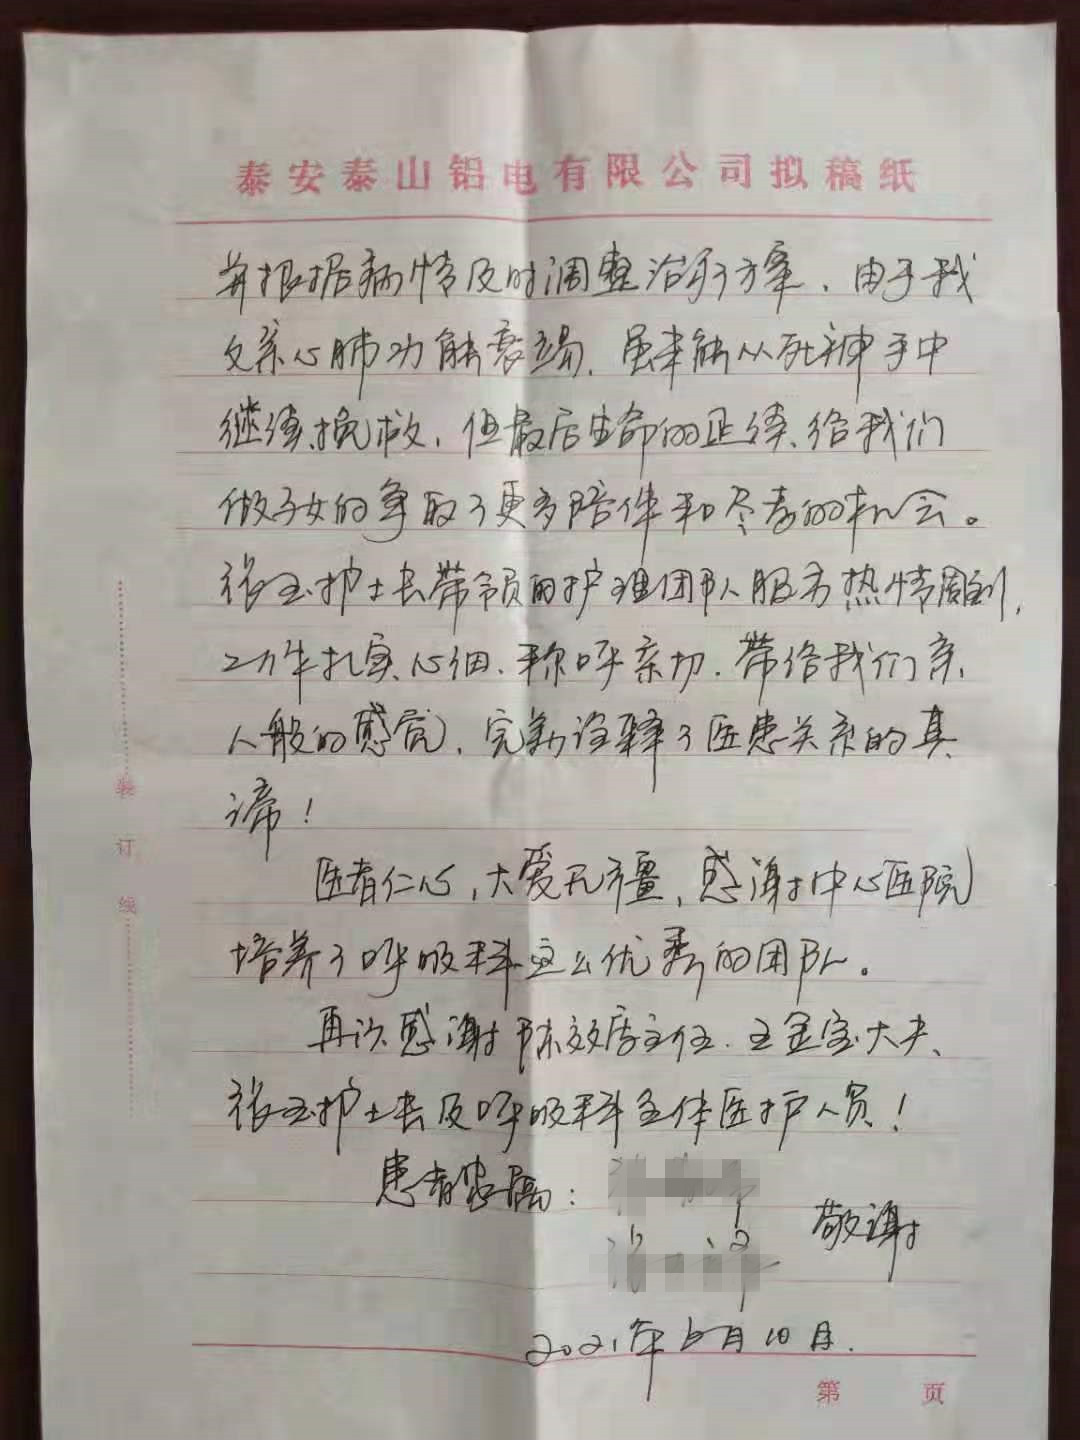 泰安泰山铝电有限公司拟稿纸
并根据病情及时调整治疗方案,由于我
父亲心肺功能衰竭,虽未能从死神手中
继续挽救,但最后生命的延续、给我们
做子女的争取了更多陪伴和尽孝的机会。
张玉护士长带领的护理团队服务热情周到,
工作扎实、心细、称呼亲切,带给我们亲
人般的感觉,完美诠释了医患关系的真
谛!
医者仁心,大爱无疆,感谢中心医院
培养了呼吸科这么优秀的团队。
再次感谢陈效店主任、王金宝大夫、
张玉护士长及呼吸科全体医护人员!
患者家属:
敬谢
2021年 月10日.
装订线
第 页